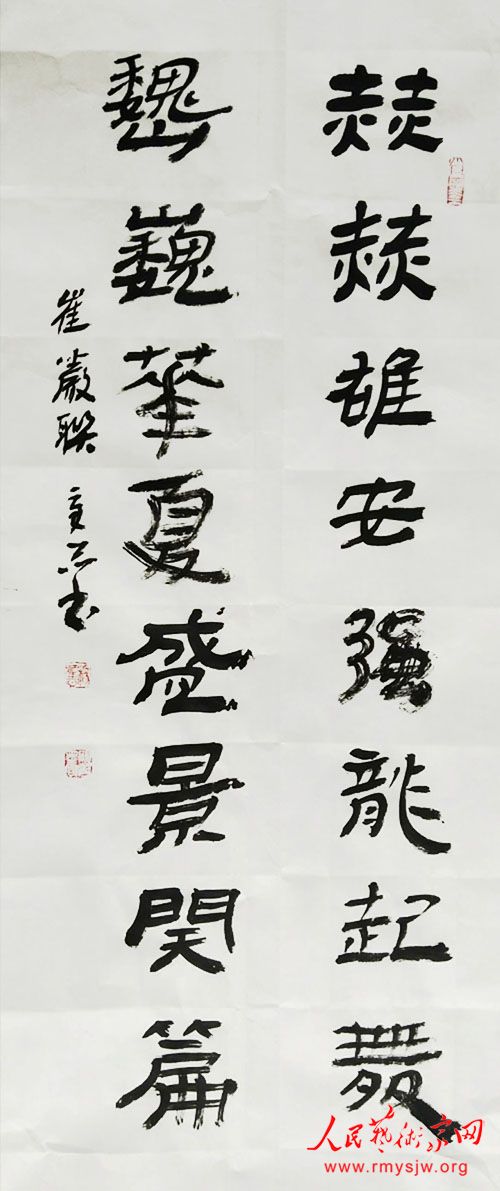 赫赫雄安强龍起舞
巍巍華夏盛景開篇
崔巖聯
人民藝術家网
www.rmysjw.org